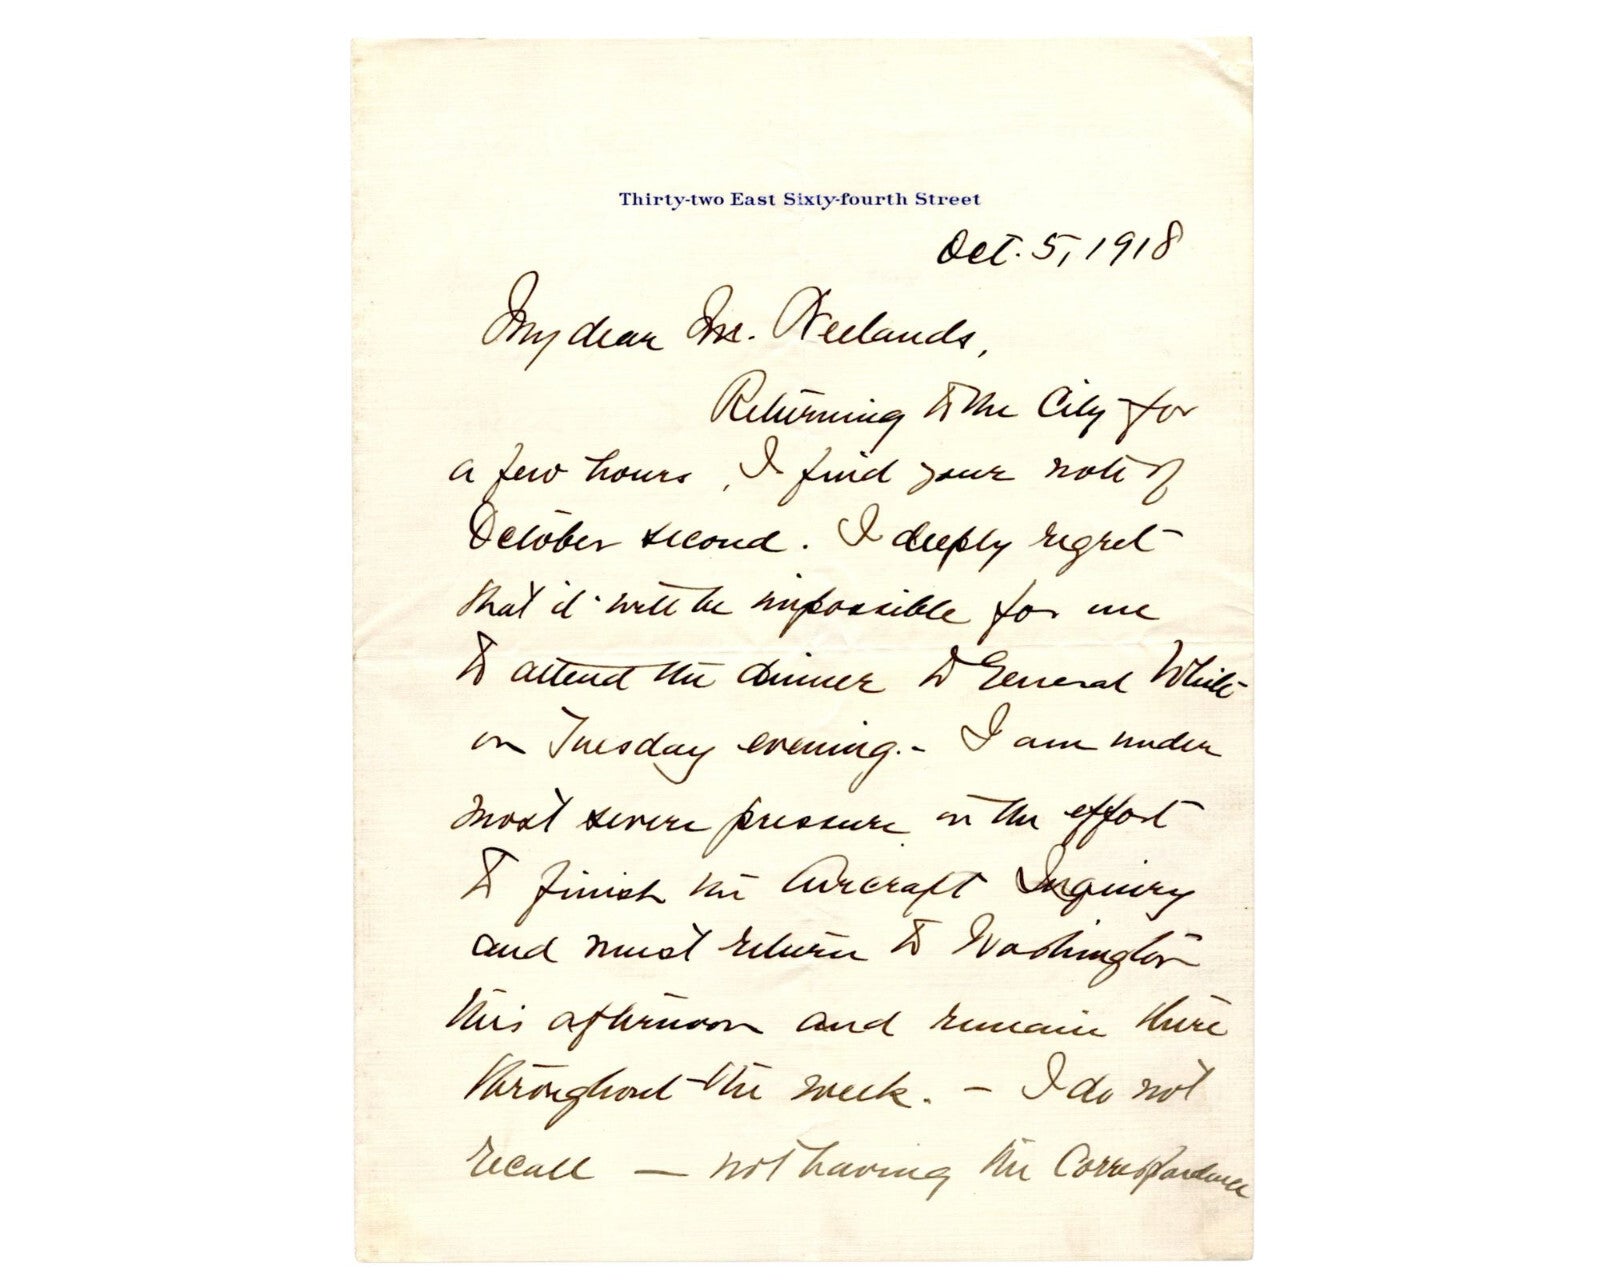 Thirty-two East Sixty-fourth Street
Oct. 5, 1918
My dear Mr. Neelands,
Returning to the City for
a few hours, I find your note of
October second. I deeply regret
that it will be impossible for me
to attend the dinner to General White
on Tuesday evening. - I am under
most severe pressure in the effort
to finish the Aircraft Inquiry
and must return to Washington
this afternoon and remain there
throughout the week. - I do not
recall — not having the correspondence